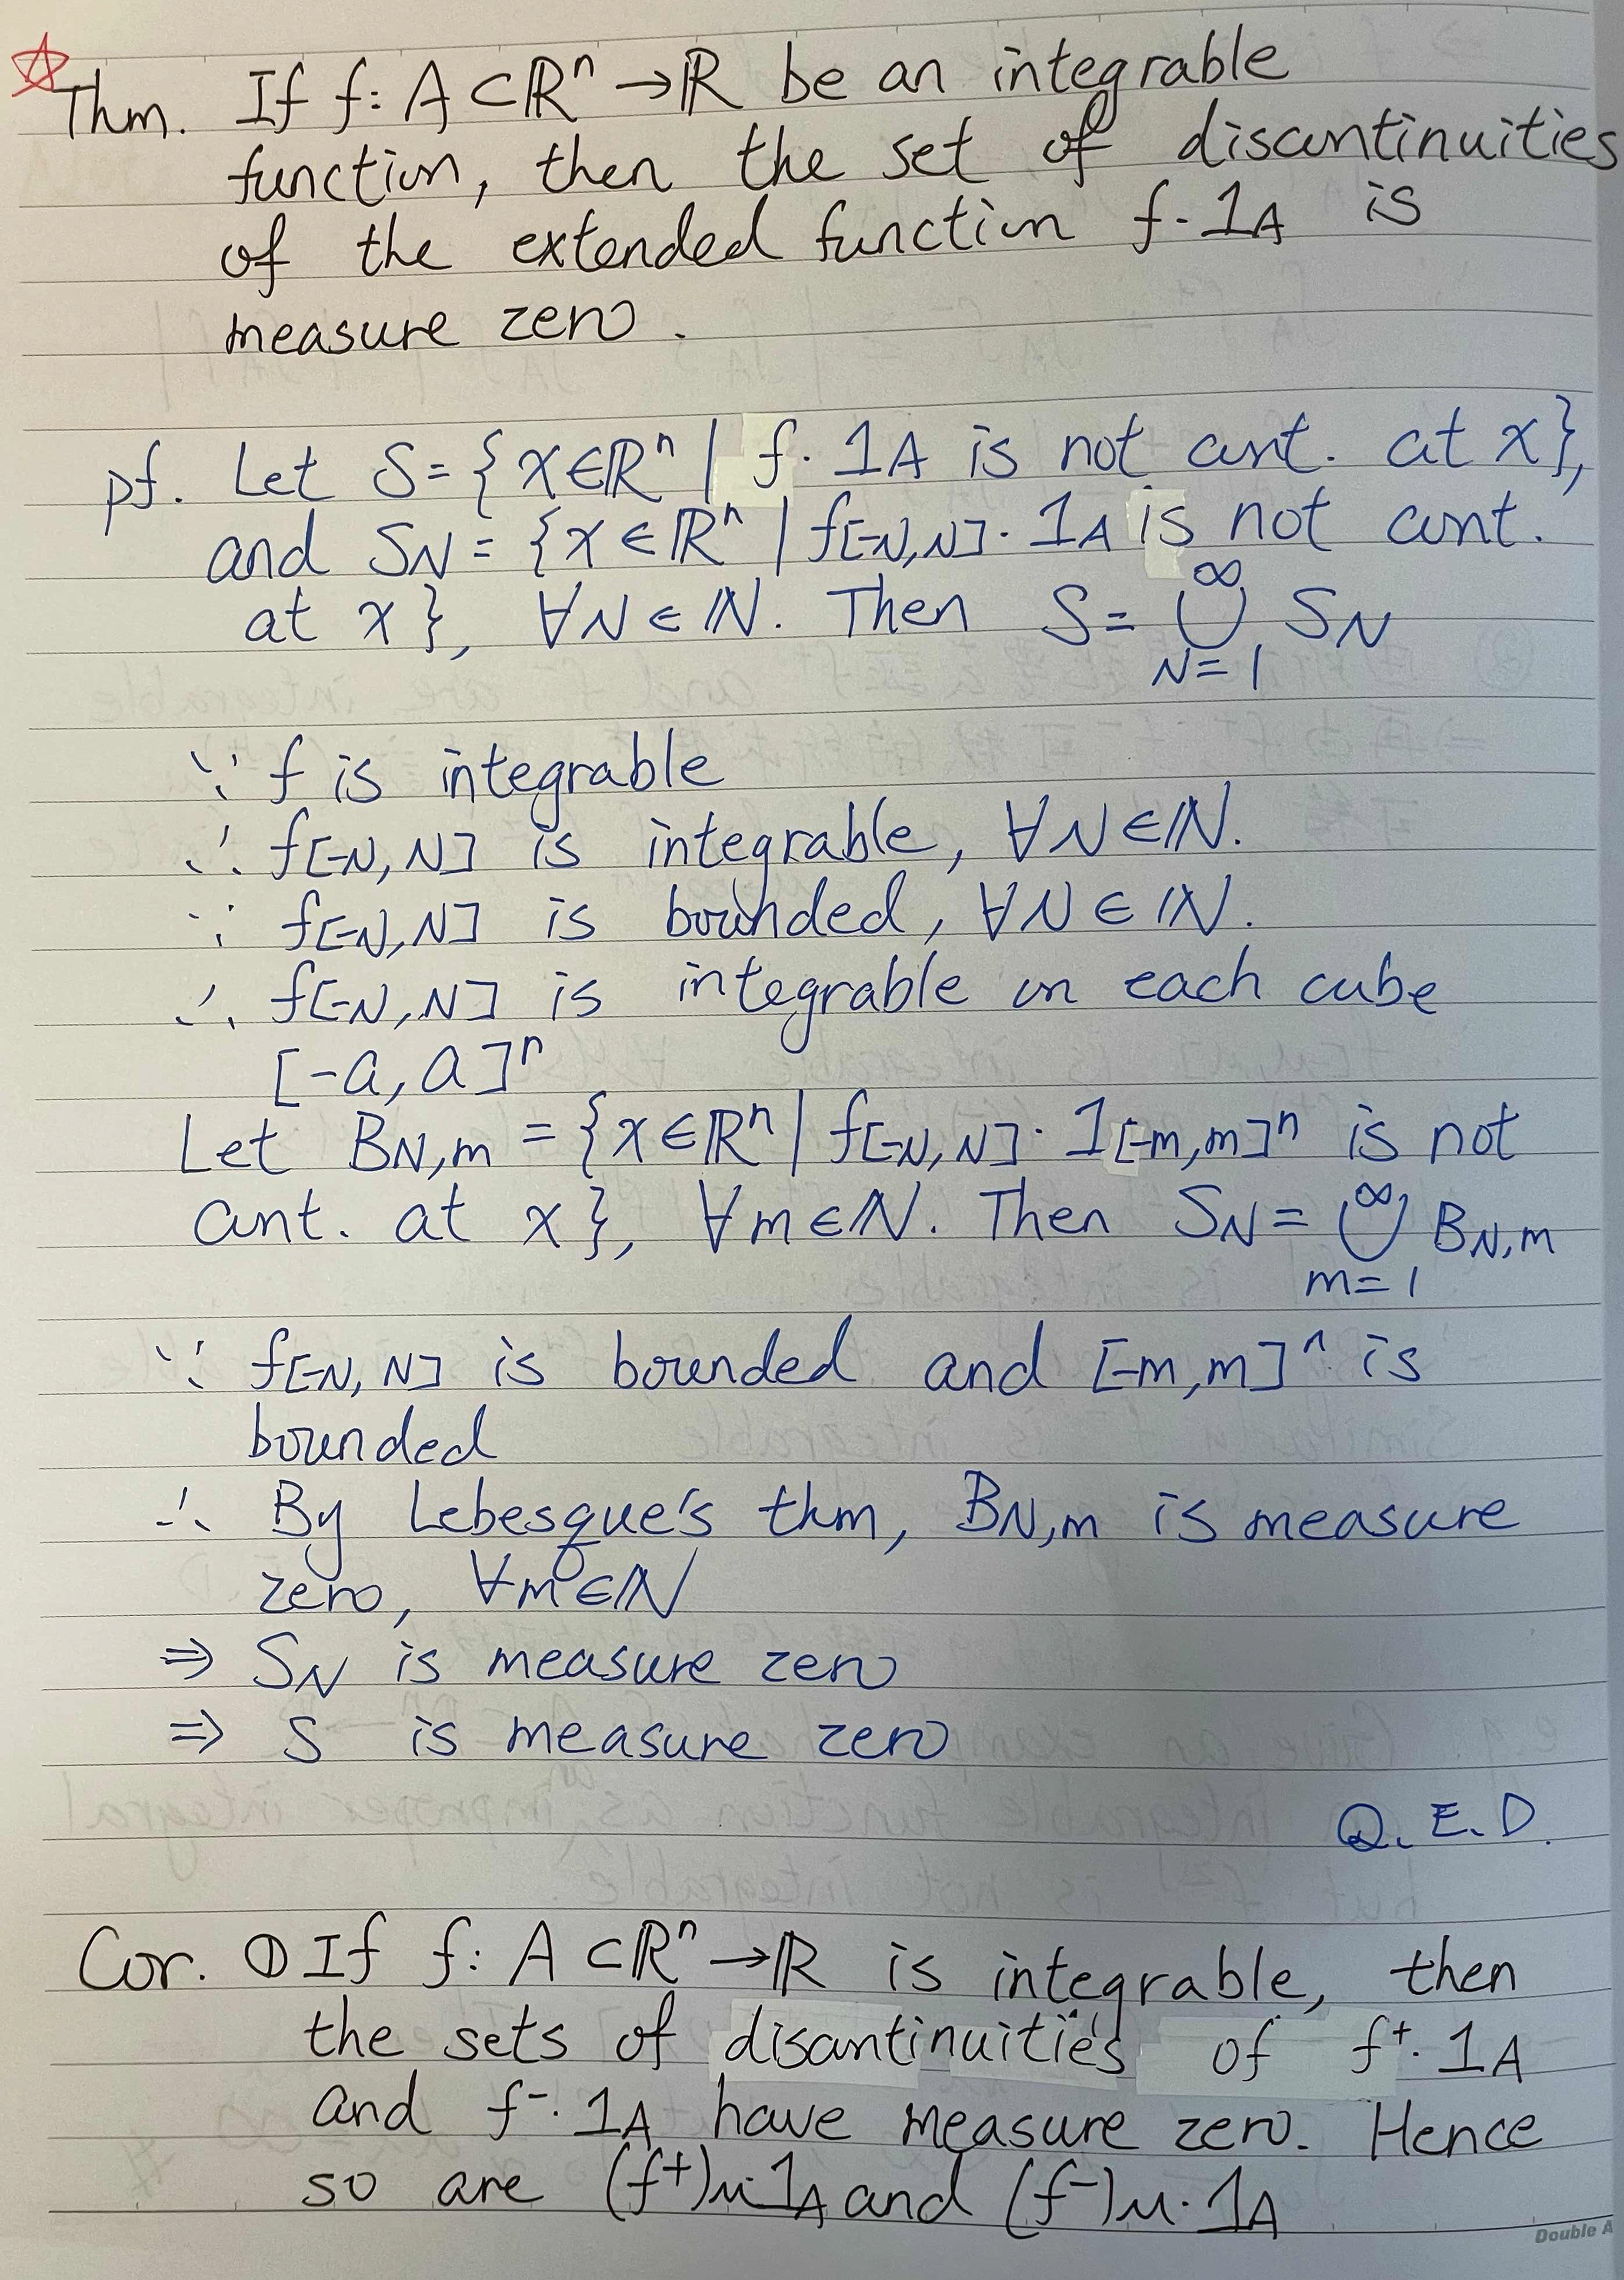 ☆Thm. If f: A⊂ℝⁿ→ℝ be an integrable
function, then the set of discontinuities
of the extended function f·1_A is
measure zero.
pf. Let S={x∈ℝⁿ | f·1_A is not cont. at x},
and S_N={x∈ℝⁿ | f_[-N,N]·1_A is not cont.
at x}, ∀N∈ℕ. Then S=⋃_{N=1}^∞ S_N
∵ f is integrable
∴ f_[-N,N] is integrable, ∀N∈ℕ.
∵ f_[-N,N] is bounded, ∀N∈ℕ.
∴ f_[-N,N] is integrable on each cube
[-a,a]ⁿ
Let B_N,m={x∈ℝⁿ | f_[-N,N]·1_[-m,m]ⁿ is not
cont. at x}, ∀m∈ℕ. Then S_N=⋃_{m=1}^∞ B_N,m
∵ f_[-N,N] is bounded and [-m,m]ⁿ is
bounded
∴ By Lebesgue's thm, B_N,m is measure
zero, ∀m∈ℕ
⇒ S_N is measure zero
⇒ S is measure zero
Q.E.D.
Cor. ① If f: A⊂ℝⁿ→ℝ is integrable, then
the sets of discontinuities of f⁺·1_A
and f⁻·1_A have measure zero. Hence
so are (f⁺)_M·1_A and (f⁻)_M·1_A
Double A